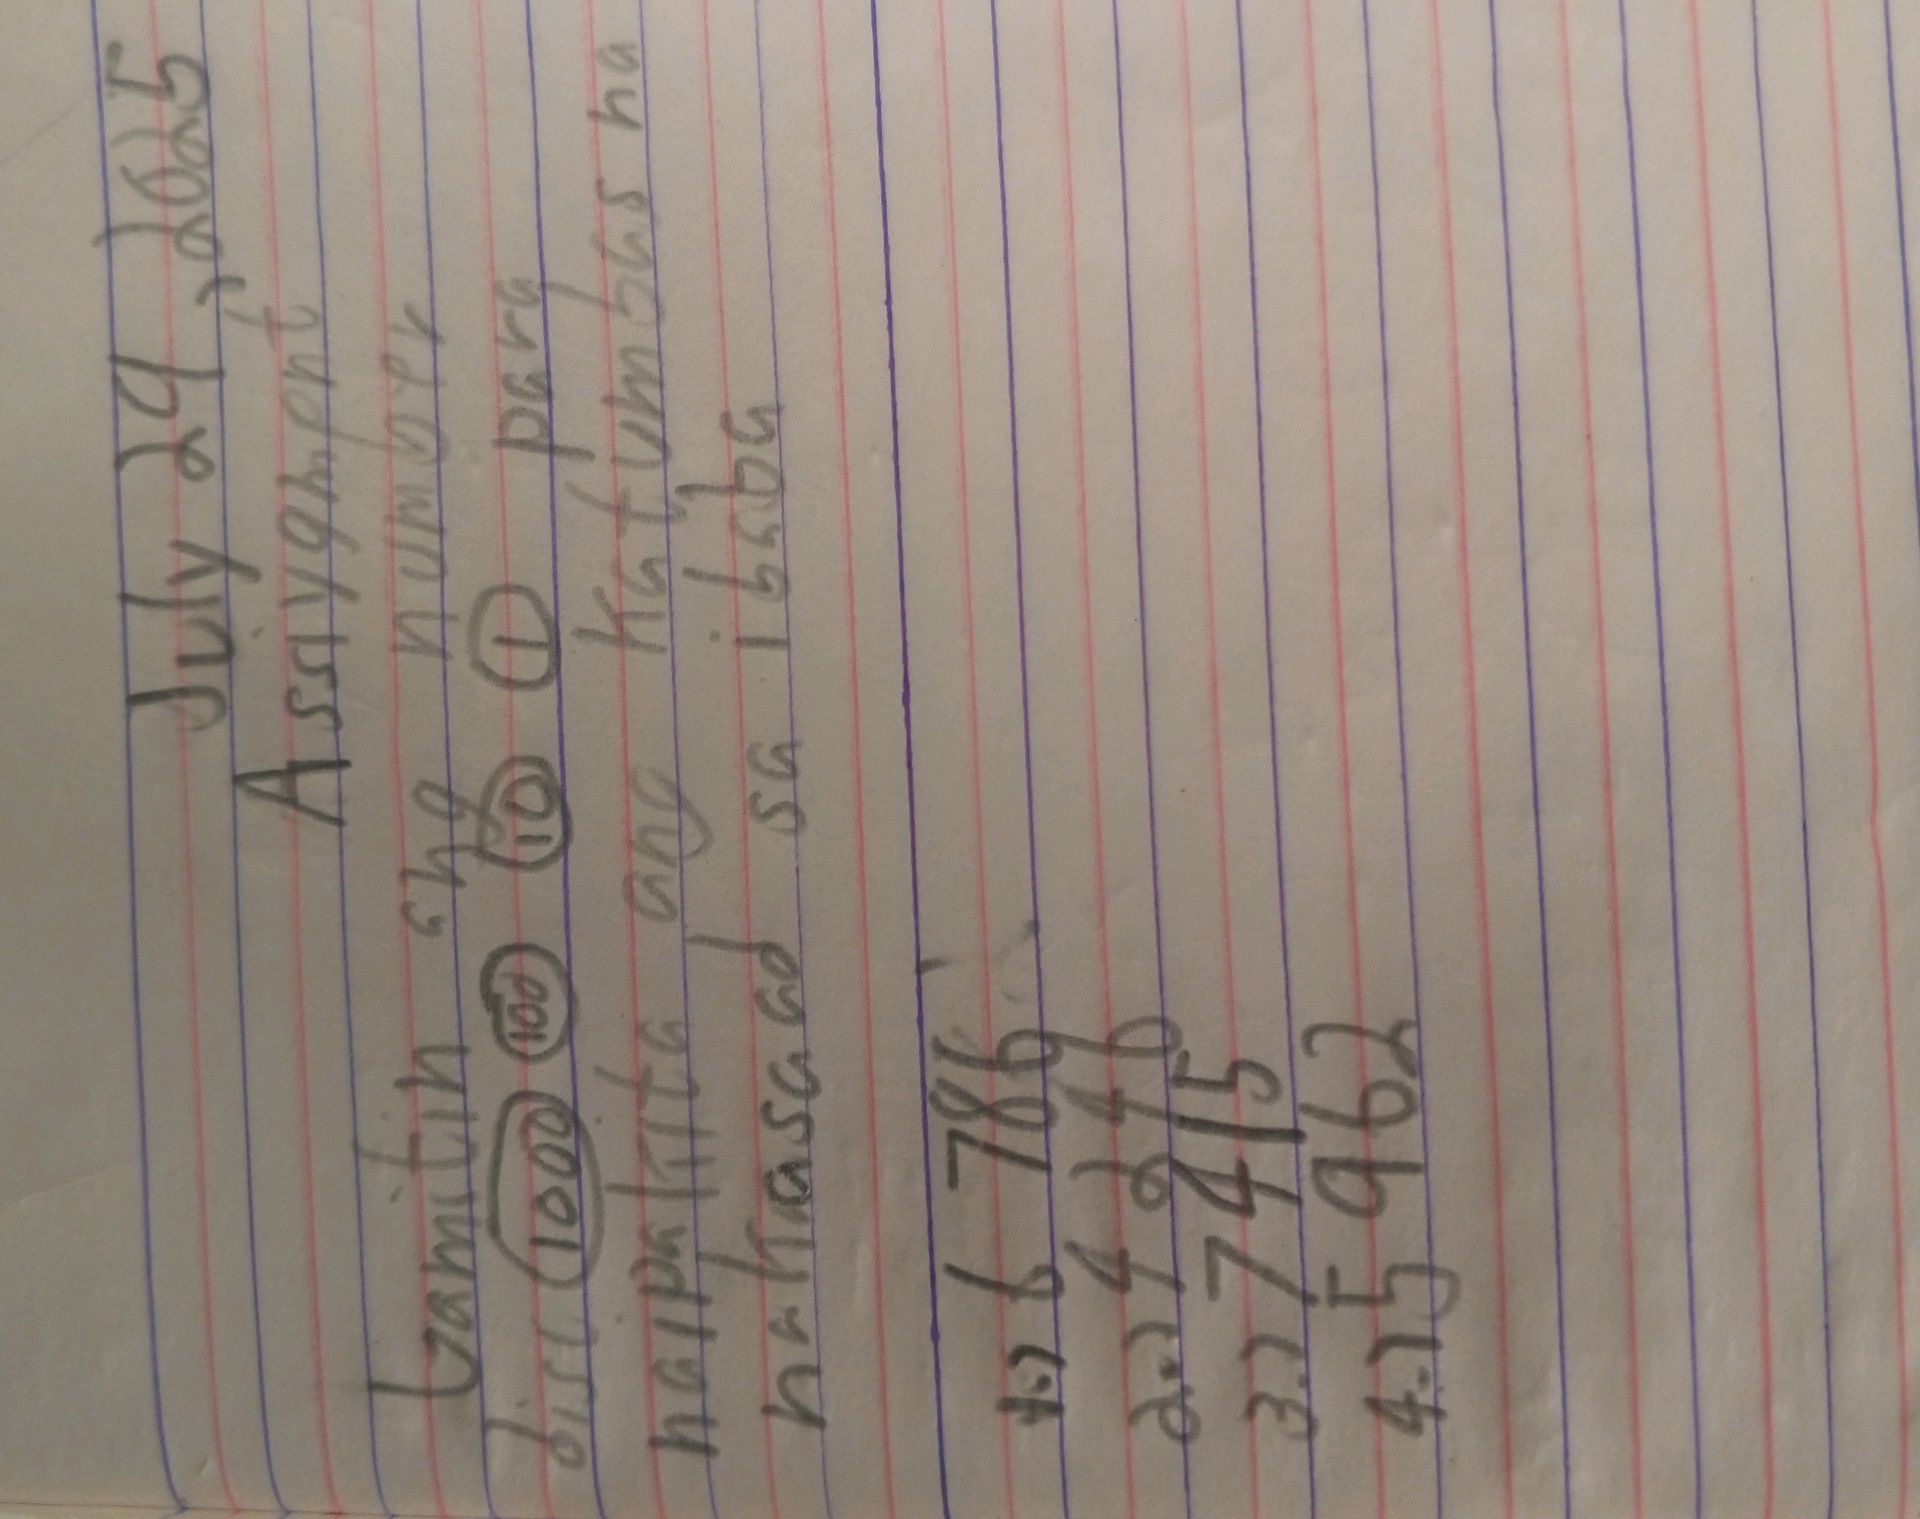 July 29, 2025
Assiygnment
Gamitin ang number
disc 1000 100 10 1 para
maipakita ang katumbas na
nakasaad sa ibaba
1.) 6 786
2.) 4 246
3.) 7 415
4.) 5 962